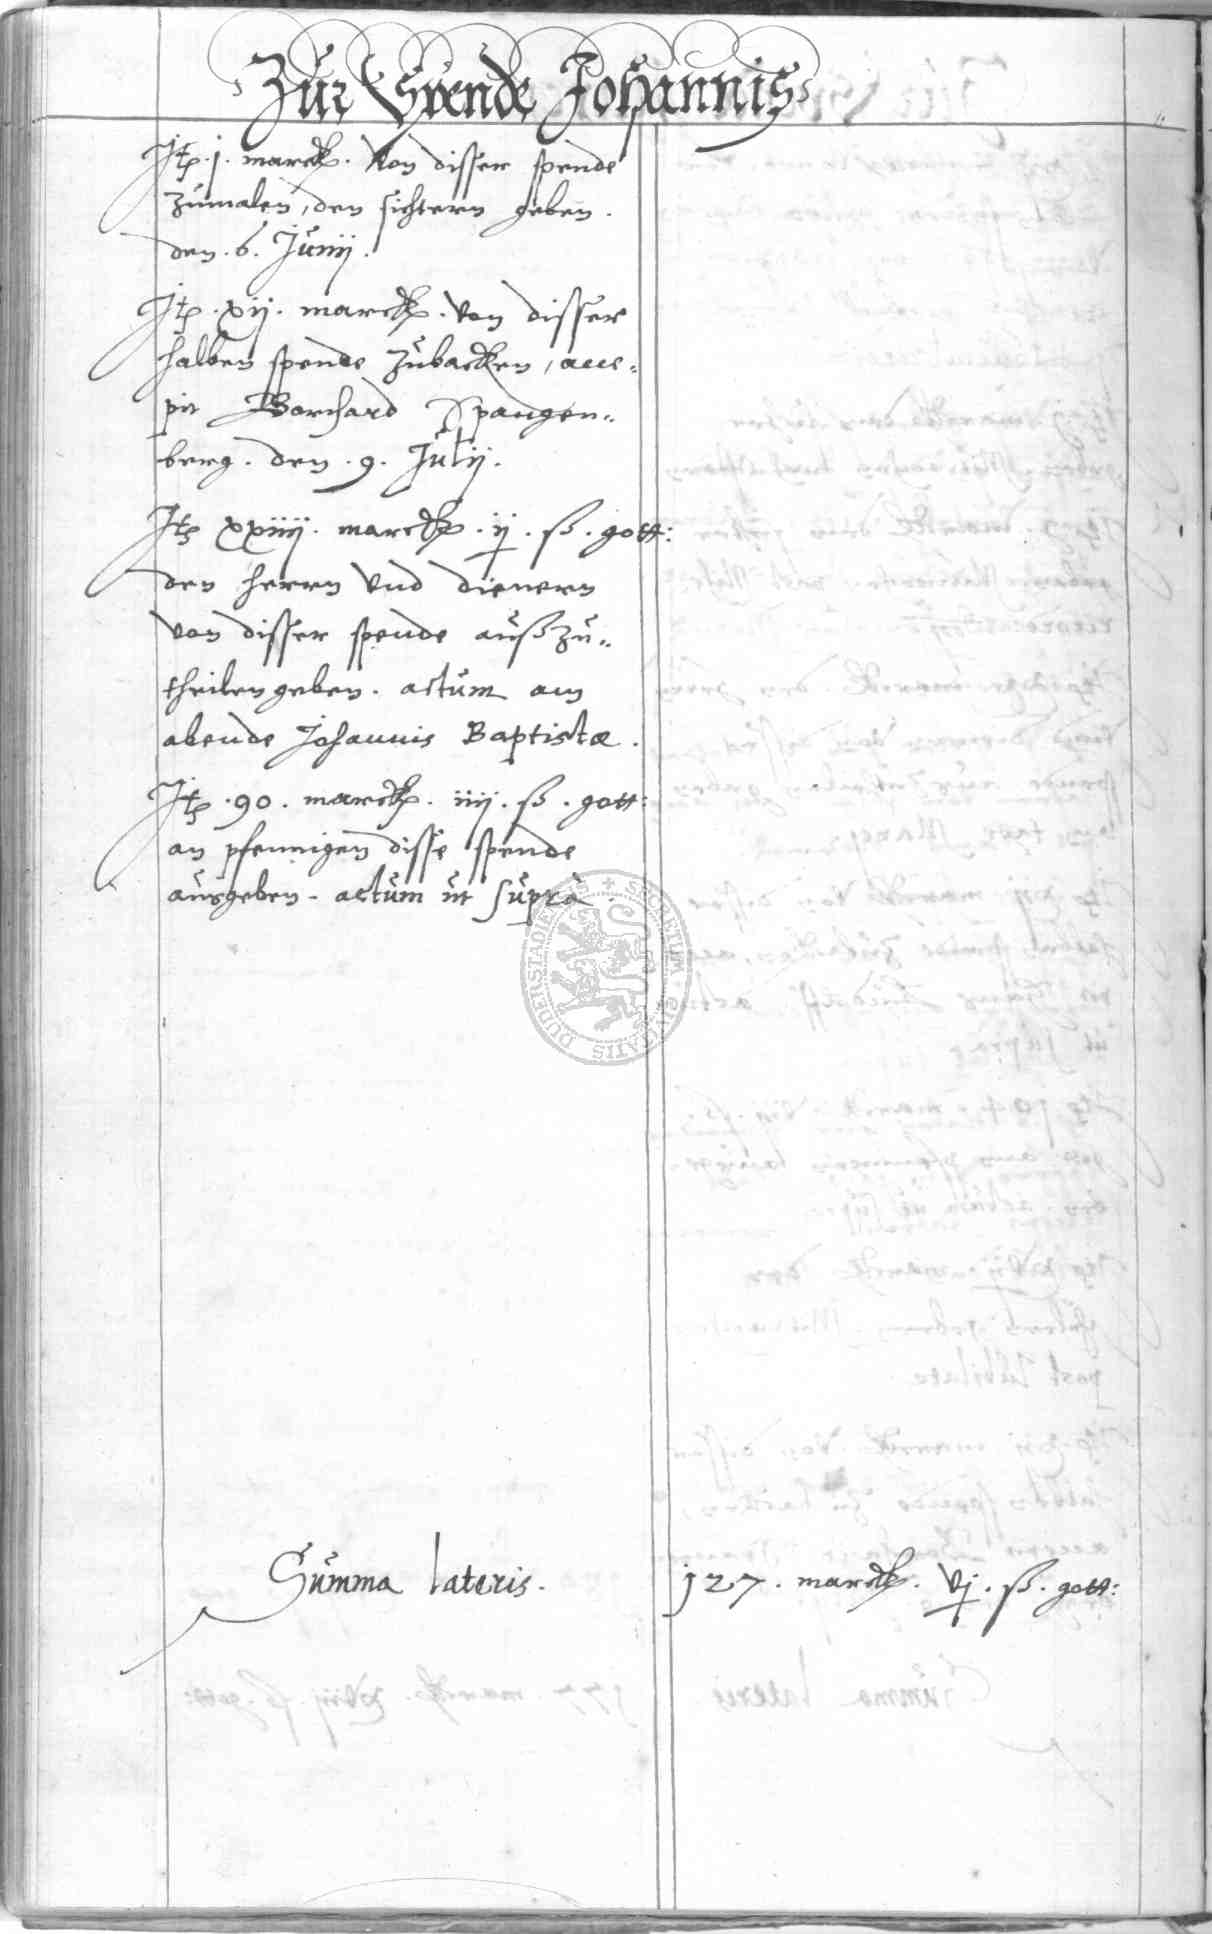 Zur Spende Johannis
Jtp. j. marck. Von disser spende
zumalen, den sichtern geben.
den. 6. Junij.
Jtp. xij. marck. Von disser
halben spende zubacken, acce-
pit Borchard Spangen-
berg. den. 9. Julij.
Jtp xxiiij. marck. ij. ß. gott:
den herrn Vnd dienern
von disser spende außzu-
theilen geben. actum am
abende Johannis Baptistæ.
Jtp. 90. marck. iiij. ß. gott:
an pfennigen disse spende
ausgeben. actum ut supra
SECRETUM CIVITATIS DUDERSTADIENSIS
Summa lateris. 127. marck. vj. ß. gott: